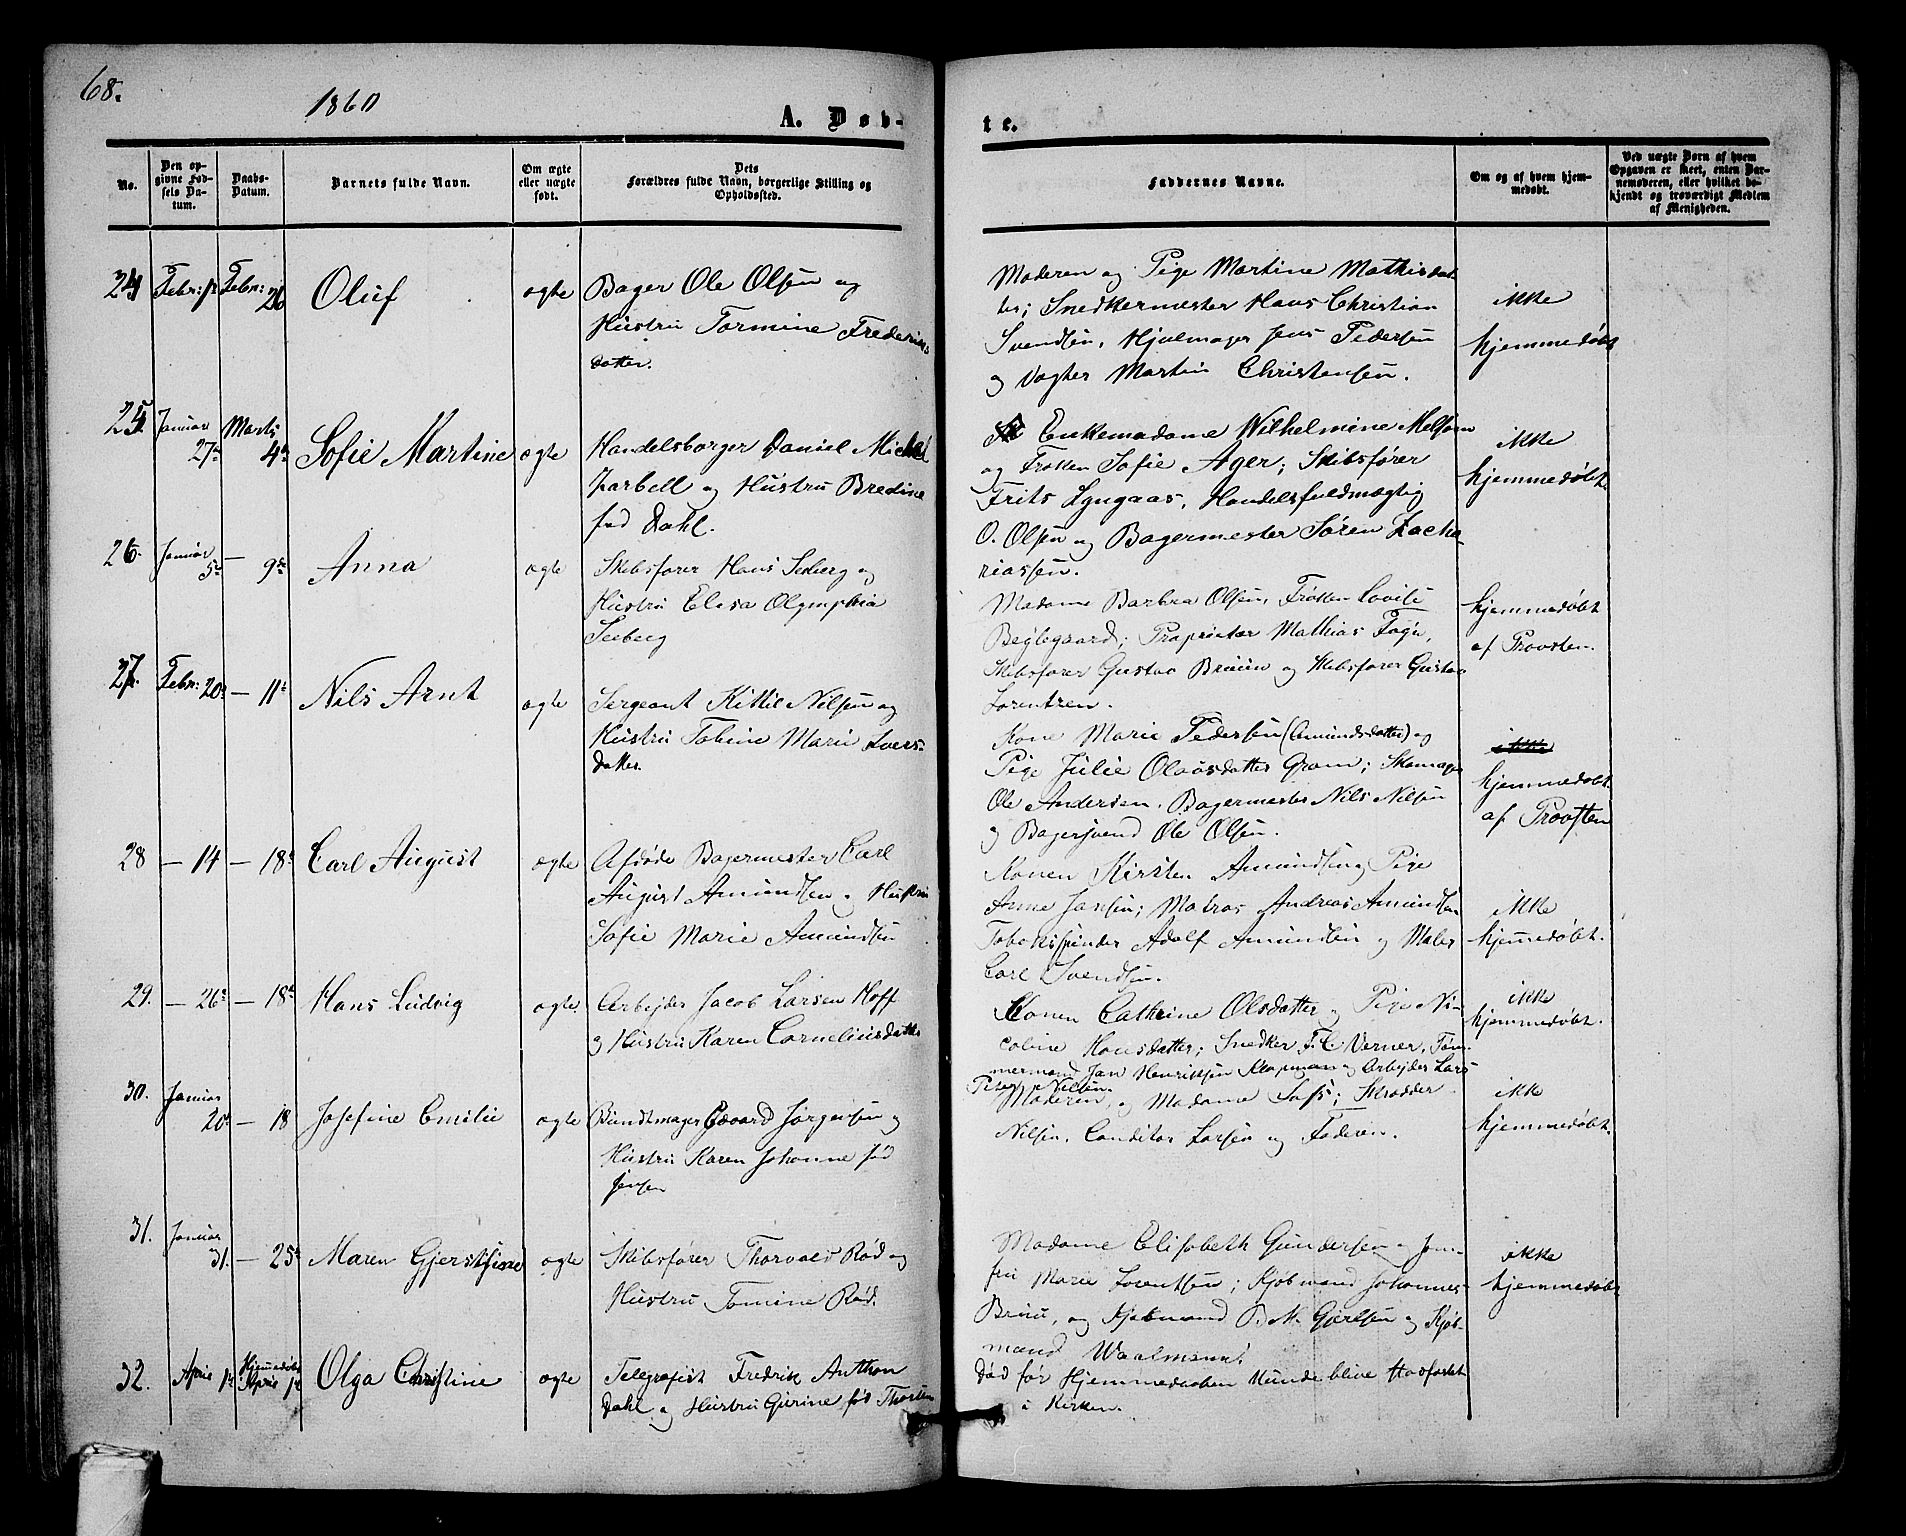 68.
1860
A. Døb-
te.
No.
Den op-
givne Fød-
sels Da-
tum.
Daabs-
Datum.
Barnets fulde Navn.
Om ægte
eller uægte
født.
Dets
Forældres fulde Navn, borgerlige Stilling og
Opholdssted.
Faddernes Navne.
Om og af hvem hjem-
medøbt.
Ved uægte Børn af hvem
Opgaven er skeet, enten Bar-
nemoderen, eller hvilket be-
kjendt og troværdigt Medlem
af Menigheden.
24 Febr: Febr: 26 Oluf ægte
Bager Ole Olsen og
Hustru Tormine Frederiks
datter.
Moderen og Pige Martine Mathisdat
ter; Snedkermester Hans Christian
Svendsen, Hjulmager Jens Pedersen
og Vægter Martin Christensen.
ikke
hjemmedøbt
25 Januar 27de Marts 4de Sofie Martine ægte
Handelsborger Daniel Michael
Zarbell og Hustru Bredine
fød Dahl.
Enkemadame Wilhelmine Melsom
og Frøken Sofie Ager; Skibsfører
Frits Lyngaas, Handelsfuldmægtig
O. Olsen og Bagermester Søren Zacha-
riassen.
ikke
hjemmedøbt.
26. Januar 5te — 9de Anna ægte
Skibsfører Hans Seeberg og
Hustru Elesa Olymphia
Seeberg
Madame Barbra Olsen, Frøken Lovise
Beylegaard; Proprietær Mathias Føyn,
Skibsfører Gustav Bruun og Skibsfører Gustav
Lorentzen.
hjemmedøbt
af Provsten.
27. Febr: 20de — 11te Nils Arnt ægte
Sergeant Kittil Nilsen og
Hustru Tobine Marie Ivers-
datter.
Kone Marie Pedersen (Amundsdatter) og
Pige Julie Olausdatter Gram; Skomager
Ole Andersen, Bagermester Nils Nilsen
og Bagersvend Ole Olsen.
ikke
hjemmedøbt.
af Provsten
28 — 14 — 18de Carl August ægte
Afdøde Bagermester Carl
August Amundsen og Hustru
Sofie Marie Amundsen
Konen Kirsten Amundsen og Pige
Anne Jansen; Matros Andreas Amundsen
Tobakspinder Adolf Amundsen og Maler
Carl Svendsen.
ikke
hjemmedøbt.
29. — 26de — 18de Hans Ludvig ægte
Arbejder Jacob Larsen Hoff
og Hustru Karen Corneliusdatter
Konen Cathrine Olsdatter og Pige Ni-
coline Hansdatter; Snedker F. C. Verner, Tøm-
mermand Jan Henriksen Klopman og Arbejder Lars
Peter Nilsen.
ikke
hjemmedøbt.
30. Januar 20de — 18 Josefine Emilie ægte
Bundtmager Edvard Jørgensen og
Hustru Karen Johanne fød
Jensen
Moderen og Madame Sass; Skrædder
Nilsen, Conditor Larsen og Faderen.
ikke
hjemmedøbt.
31. Januar 31. — 25de Maren Gjerstine ægte
Skibsfører Thorvald Rød og
Hustru Tomine Rød.
Madame Elisabeth Gundersen og Jom-
fru Marie Lorentsen; Kjøbmand Johannes
Bruu, og Kjøbmand B. M. Gjertsen og Kjøb-
mand Waalmann.
ikke
hjemmedøbt
32. April 1ste Hjemmedøbt April 1ste Olga Christine ægte
Telegrafist Fredrik Anthon
Dahl og Hustru Gurine fød Thorsen
Død før Hjemmedaaben kunde blive stadfæstet
i Kirken.